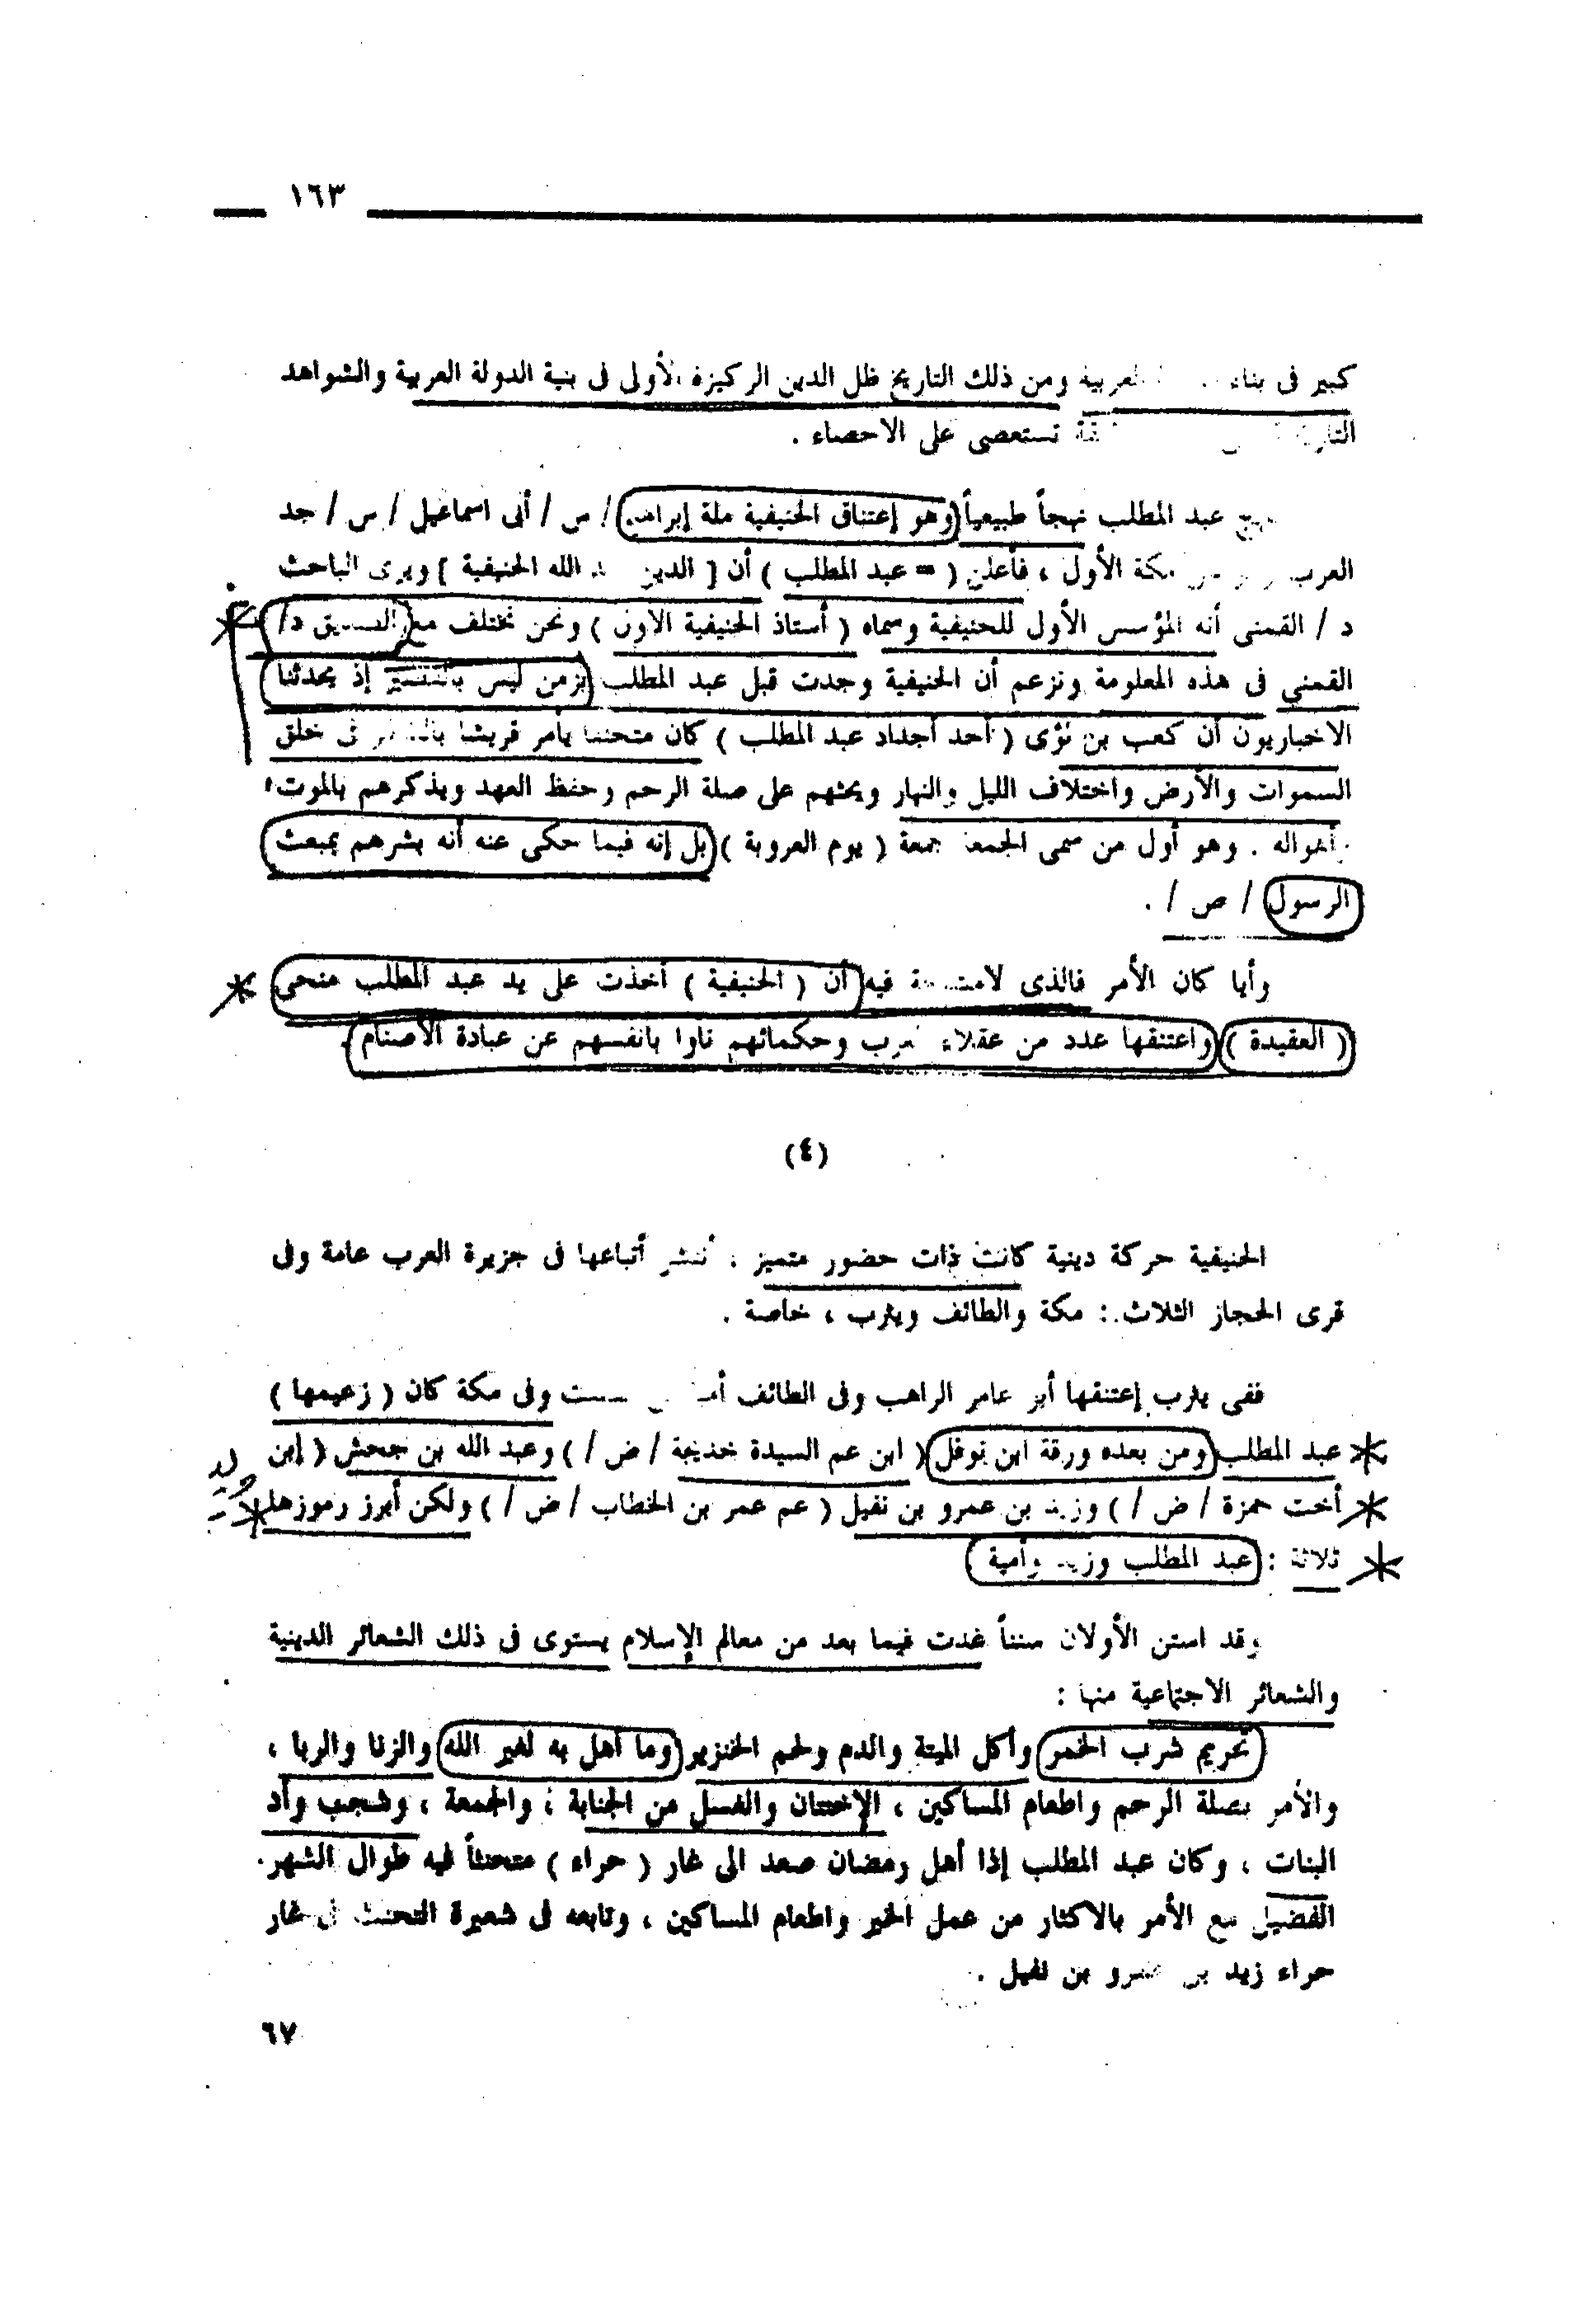 ١٦٣
كبير فى بناء العربية ومن ذلك التاريخ ظل الدين الركيزة الأولى فى بنية الدولة العربية والشواهد
تستعصى على الاحصاء .
عبد المطلب نهجاً طبيعياً وهو إعتناق الحنيفية ملة إبراهيم / س / أبى اسماعيل / س / جد
العرب مكة الأول ، فأعلن ( = عبد المطلب ) أن [ الدين الله الحنيفية ] ويرى الباحث
د / القمنى أنه المؤسس الأول للحنيفية وسماه ( أستاذ الحنيفية الاون ) ونحن نختلف مع الصديق د/
القمنى فى هذه المعلومة ونزعم أن الحنيفية وجدت قبل عبد المطلب بزمن ليس بالقصير إذ يحدثنا
الاخباريون أن كعب بن لؤى ( أحد أجداد عبد المطلب ) كان متحنفا يأمر قريشا فى خلق
السموات والأرض واختلاف الليل والنهار ويحثهم على صلة الرحم وحفظ العهد ويذكرهم بالموت
وأهواله . وهو أول من سمى الجمعة جمعة ( يوم العروبة ) بل إنه فيما حكى عنه أنه بشرهم بمبعث
الرسول / ص / .
وأيا كان الأمر فالذى فيه أن ( الحنيفية ) أخذت على يد عبد المطلب منحى
( العقيدة ) واعتنقها عدد من عقلاء العرب وحكمائهم نأوا بأنفسهم عن عبادة الأصنام .
(٤)
الحنيفية حركة دينية كانت ذات حضور متميز ، أتباعها فى جزيرة العرب عامة وفى
قرى الحجاز الثلاث : مكة والطائف ويثرب ، خاصة .
ففى يثرب إعتنقها أبو عامر الراهب وفى الطائف وفى مكة كان ( زعيمها )
عبد المطلب ومن بعده ورقة ابن نوفل ( ابن عم السيدة خديجة / ض / ) وعبد الله بن جحش ( إبن
أخت حمزة / ض / ) وزيد بن عمرو بن نفيل ( عم عمر بن الخطاب / ض / ) ولكن أبرز رموزها
ثلاثة : عبد المطلب وزيد وأمية
وقد استن الأولان سنناً غدت فيما بعد من معالم الإسلام يستوى فى ذلك الشعائر الدينية
والشعائر الاجتماعية منها :
تحريم شرب الخمر وأكل الميتة والدم ولحم الخنزير وما أهل به لغير الله والزنا والربا ،
والأمر بصلة الرحم واطعام المساكين ، الإختتان والغسل من الجنابة ، والجمعة ، وشجب وأد
البنات ، وكان عبد المطلب إذا أهل رمضان صعد الى غار ( حراء ) متحنثاً فيه طوال الشهر
الفضيل مع الأمر بالاكثار من عمل الخير واطعام المساكين ، وتابعه فى شعيرة التحنث فى غار
حراء زيد بن عمرو بن نفيل .
٦٧